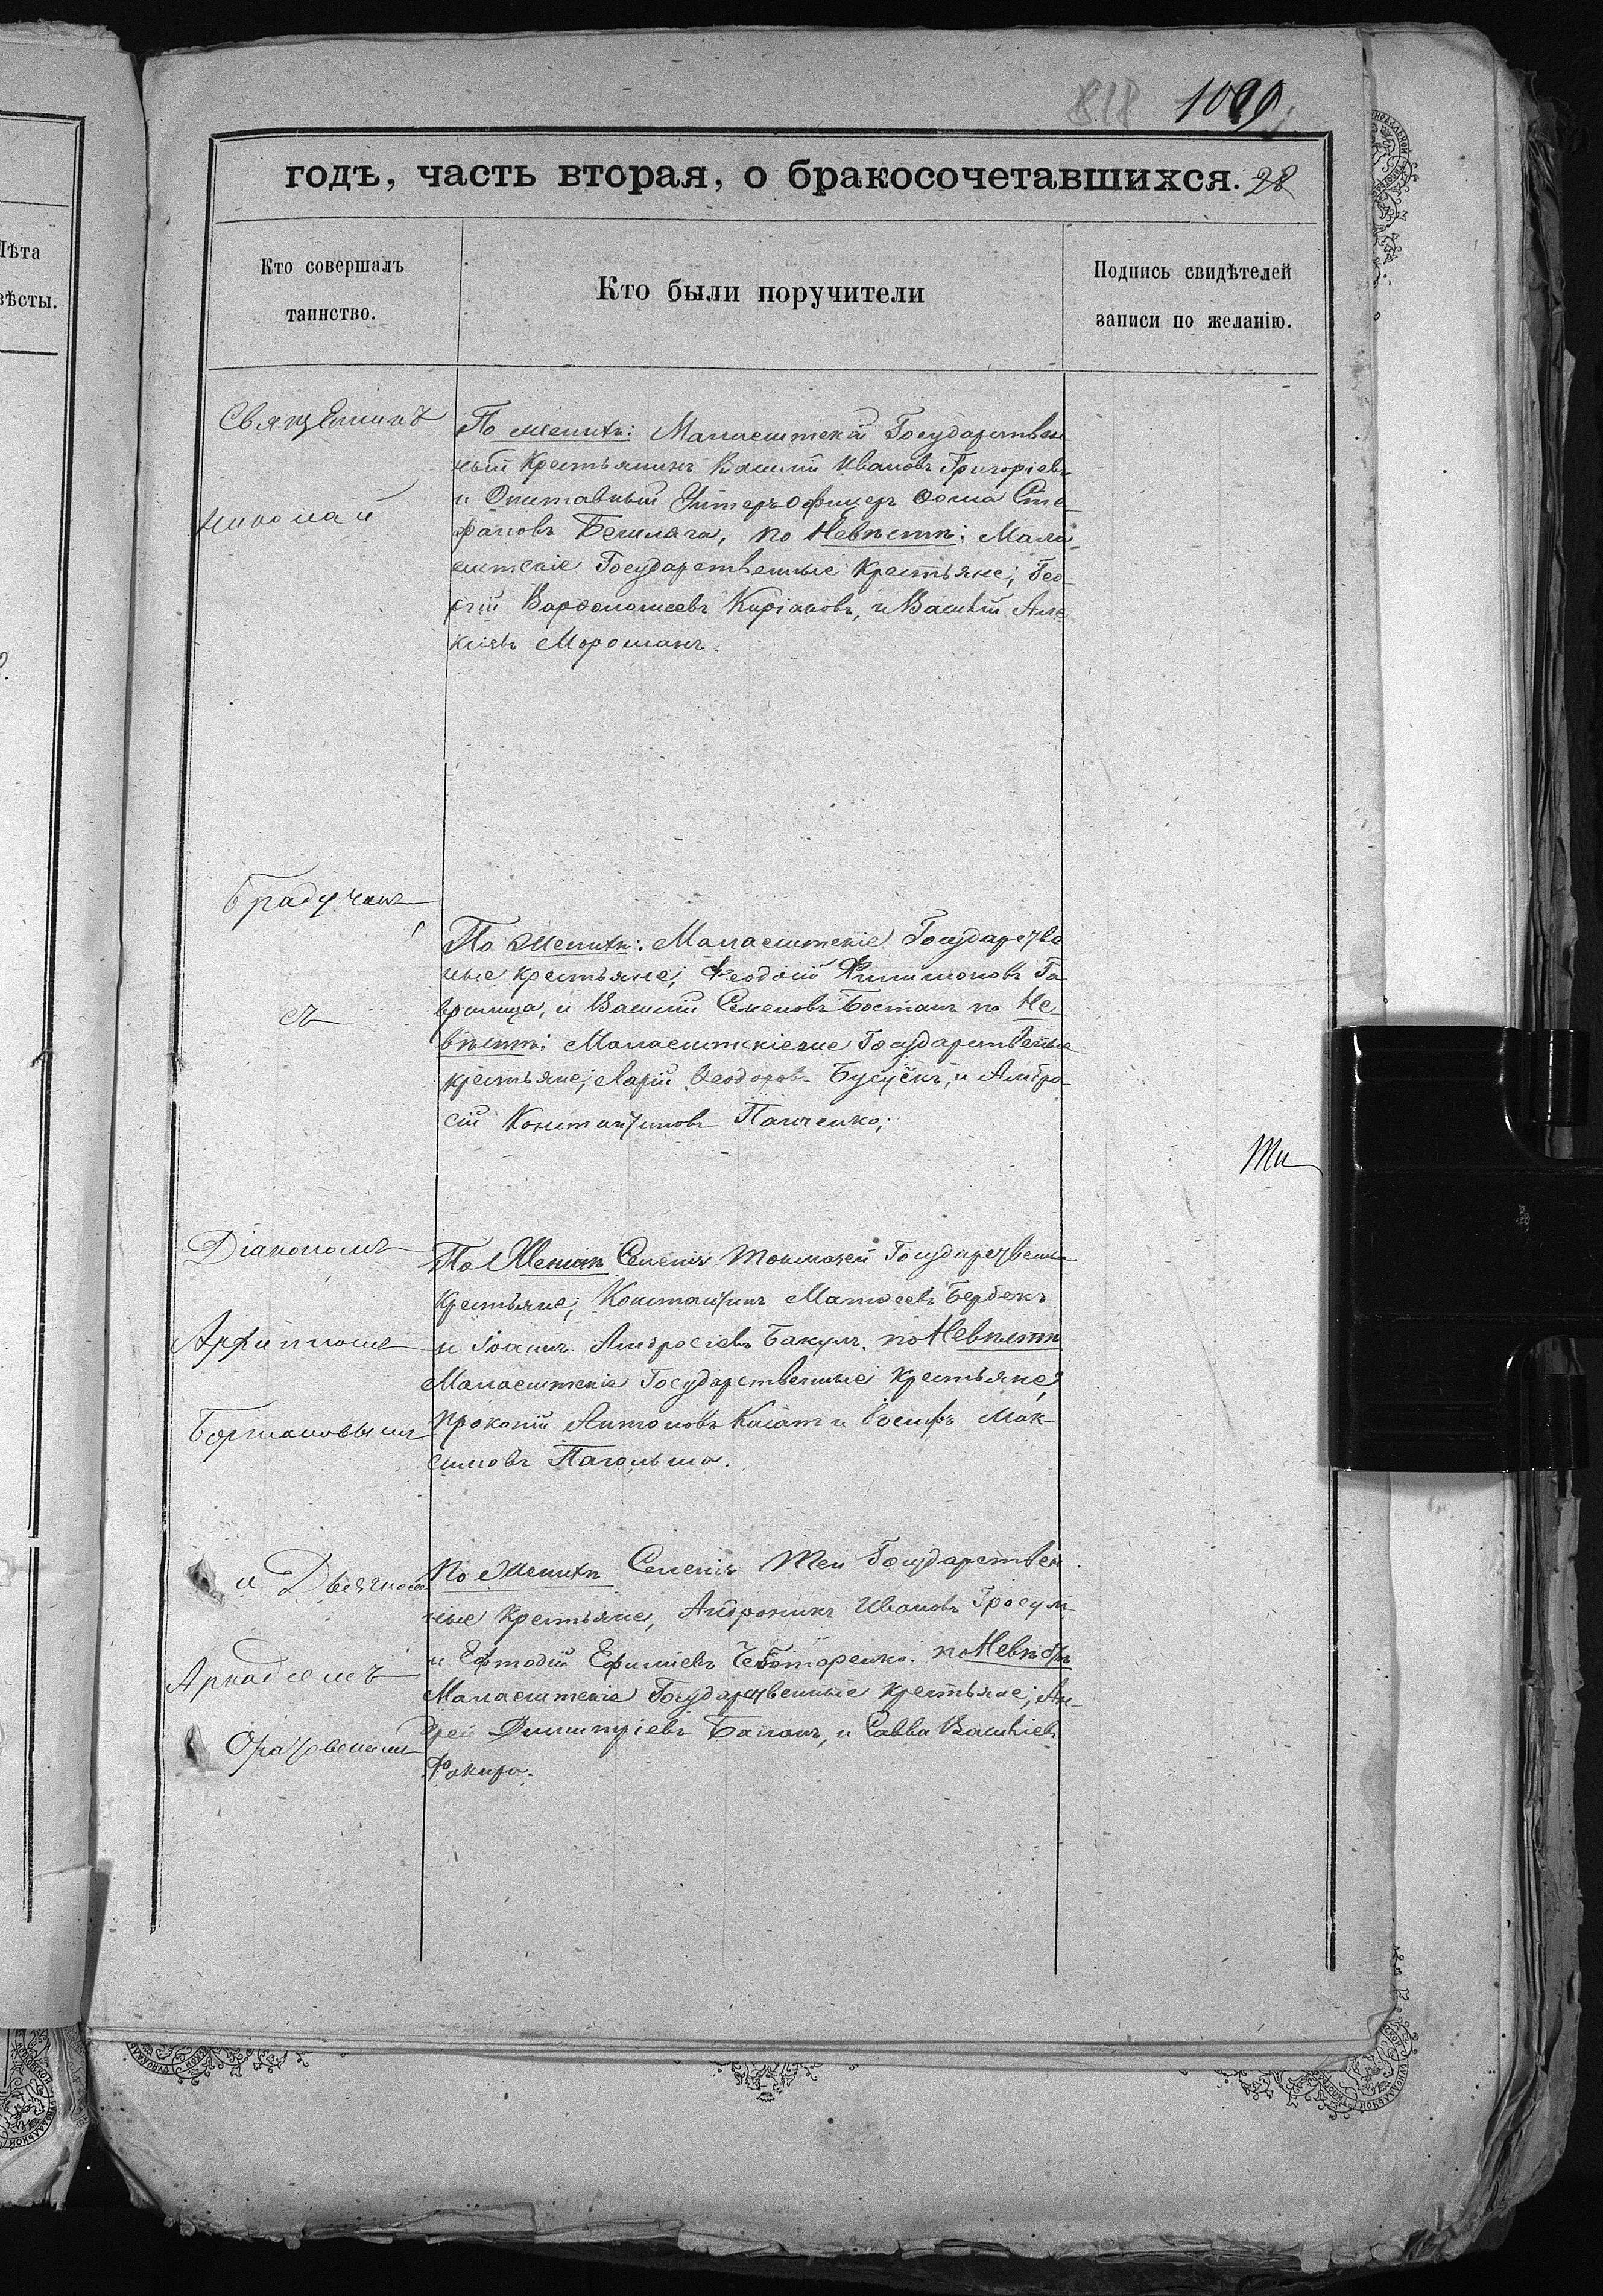 818 1099
годъ, часть вторая, о бракосочетавшихся. 28
Лѣта
вѣсты.
Кто совершалъ
таинство.
Кто были поручители
Подпись свидѣтелей
записи по желанію.
Священникъ
Николай
Брадучанъ
съ
Діакономъ
Архиппомъ
Боргиановымъ
и Дьячкомъ
Аркадіемъ
По Женихѣ: Малаештскій Государствен
ный Крестьянинъ Василій Ивановъ Григоріевъ
и Отставный Унтеръ Офицеръ Ѳома Сте-
фановъ Бешляга, по Невѣстѣ: Мала-
ештскіе Государственные Крестьяне; Геор
гій Варѳоломеевъ Киріаковъ, и Василій Але
ксіевъ Морошанъ.
По Женихѣ: Малаештскіе Государстве
ные крестьяне; Феодосій Филимоновъ Га-
врилица, и Василій Семеновъ Бостанъ по Не-
вѣстѣ: Малаештскіеже Государственные
крестьяне; Иларій Ѳеодоровъ Бусуёкъ, и Амвро-
сій Константиновъ Панченко;
Ти
По Женихѣ Селенія Токмазей Государственые
Крестьяне; Константинъ Матѳеевъ Бербекъ
и Іоаннъ Амвросіевъ Бакулъ. по Невѣстѣ
Малаештскіе Государственные крестьяне,
Прокопій Антоновъ Касап и Іосифъ Мак-
симовъ Пагольша.
По Женихѣ Селенія Теи Государствен
ные крестьяне, Андроникъ Ивановъ Гросул
и Ефтодій Ефиміевъ Чеботаренко. по Невѣстѣ
Малаештскіе Государственные крестьяне; Ан-
дрей Димитріевъ Баланъ, и Савва Василіевъ
Факира.